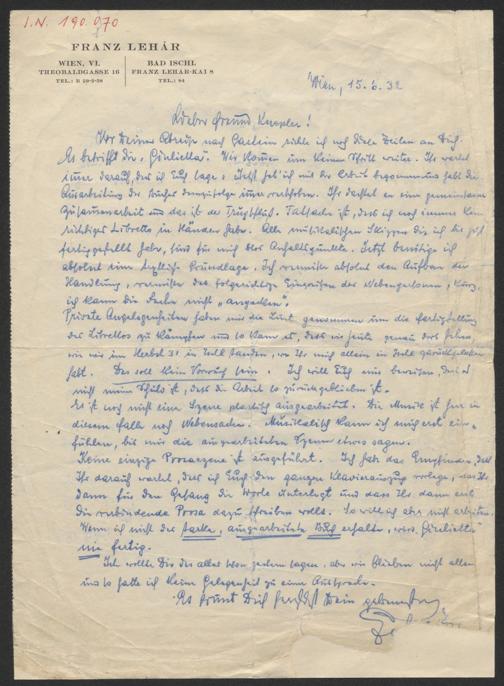 I.N. 190.970
FRANZ LEHÁR
WIEN, VI.
THEOBALDGASSE 16
TEL.: B 29-2-28
BAD ISCHL
FRANZ LEHÁR-KAI 8
TEL.: 84
Wien, 15.6.32
Lieber Freund Knepler!
Vor Deiner Abreise nach Gastein richte ich noch diese Zeilen an Dich.
Es betrifft die „Giulietta“. Wir kommen um keinen Schritt weiter. Ihr wartet
immer darauf, dass ich Euch sage: Jetzt hab' ich mit der Arbeit begonnen
Ausarbeitung des Buches demzufolge immer verschoben. Ihr dachtet an eine gemeinsame
Zusammenarbeit und das ist der Trugschluß. Tatsache ist, dass ich noch immer kein
richtiges Libretto in Händen habe. Alle musikalischen Skizzen die ich bis jetzt
fertiggestellt habe, sind für mich bloß Anhaltspunkte. Jetzt benötige ich
absolut eine textliche Grundlage. Ich vermisse absolut den Aufbau der
Handlung, vermisse das folgerichtige Eingreifen der Nebenpersonen, kurz,
ich kann die Sache nicht „anpacken“.
Private Angelegenheiten haben mir die Lust genommen um die Fertigstellung
des Librettos zu kämpfen und so kam es, dass wir heute genau dort stehen,
wie wir im Herbst 31 in Zell standen, wo Ihr mich allein in Zell zurückgelassen
habt. Das soll kein Vorwurf sein. Ich will Euch nur beweisen, dass es
nicht meine Schuld ist, dass die Arbeit so zurückgeblieben ist.
Es ist noch nicht eine Szene plastisch ausgearbeitet. Die Musik ist hier in
diesem Falle noch Nebensache. Musikalisch kann ich mich erst ein-
fühlen, bis mir die ausgearbeiteten Szenen etwas sagen.
Keine einzige Prosaszene ist ausgeführt. Ich hab das Empfinden, dass
Ihr darauf wartet, dass ich Euch den ganzen Klavierauszug vorlege, dass Ihr
dann für den Gesang die Worte unterlegt und dass Ihr dann erst
die verbindende Prosa dazu schreiben wollt. So will ich aber nicht arbeiten.
Wenn ich nicht das starke, ausgearbeitete Buch erhalte, wird „Giulietta“
nie fertig.
Ich wollte Dir das alles schon gestern sagen, aber wir blieben nicht allein
und so hatte ich keine Gelegenheit zu einer Aussprache.
Es grüßt Dich herzlichst Dein